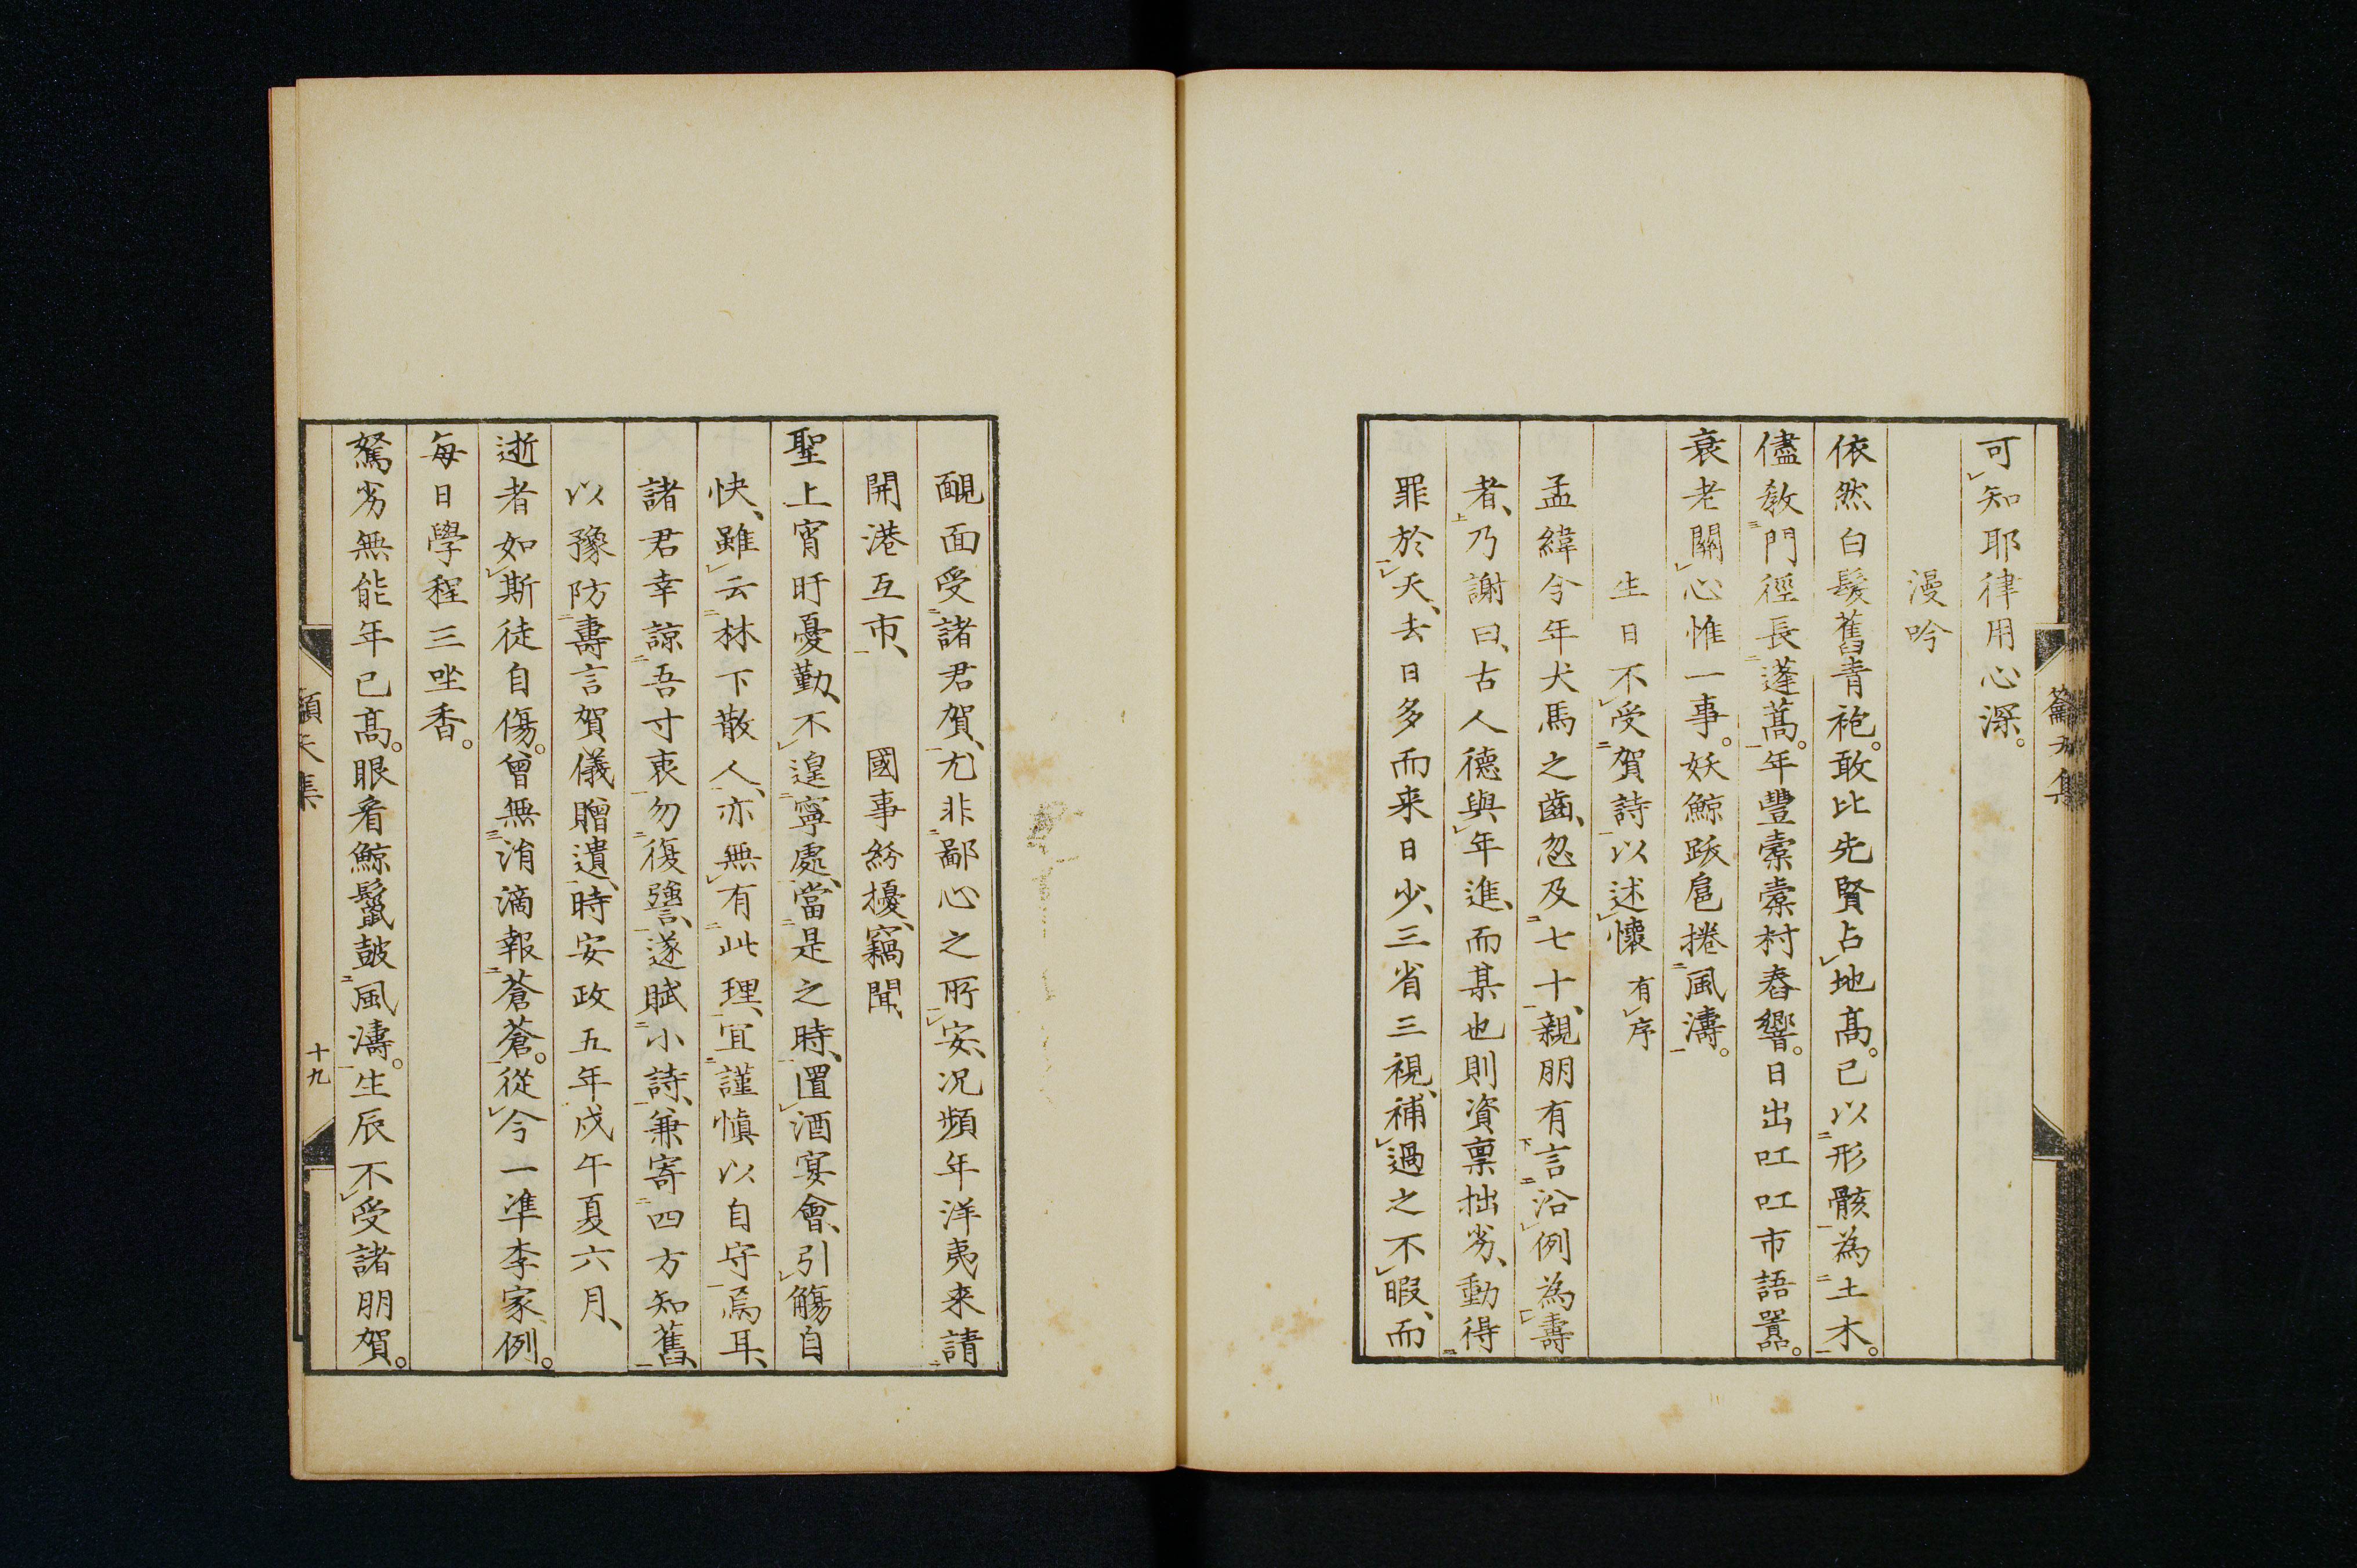 可知耶律用心深。
漫吟
依然白髮舊青袍。敢比先賢占地高。已以形骸為土木。
儘教門徑長蓬蒿。年豐橐橐村舂響。日出叿叿市語囂。
衰老關心惟一事。妖鯨跋扈捲風濤。
生日不受賀詩以述懷 有序
孟緯今年犬馬之齒、忽及七十、親朋有言沿例為壽
者、乃謝曰、古人德與年進、而某也則資稟拙劣、動得
罪於天、去日多而来日少、三省三視、補過之不暇、而
靦面受諸君賀、尤非鄙心之所安、况頻年洋夷来請
開港互市、 國事紛擾、竊聞
聖上宵旰憂勤、不遑寧處、當是之時、置酒宴會、引觴自
快、雖云林下散人、亦無有此理、宜謹愼以自守焉耳、
諸君幸諒吾寸衷、勿復彊、遂賦小詩、兼寄四方知舊、
以豫防壽言賀儀贈遺、時安政五年戊午夏六月、
逝者如斯徒自傷。曾無涓滴報蒼蒼。從今一準李家例。
每日學程三坐香。
駑劣無能年已高。眼看鯨鬣皷風濤。生辰不受諸朋賀。
集
十九